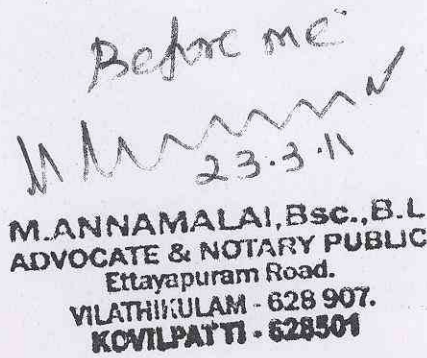 Before me
23.3.11
M.ANNAMALAI,Bsc.,B.L
ADVOCATE & NOTARY PUBLIC
Ettayapuram Road.
VILATHIKULAM - 628 907.
KOVILPATTI - 628501